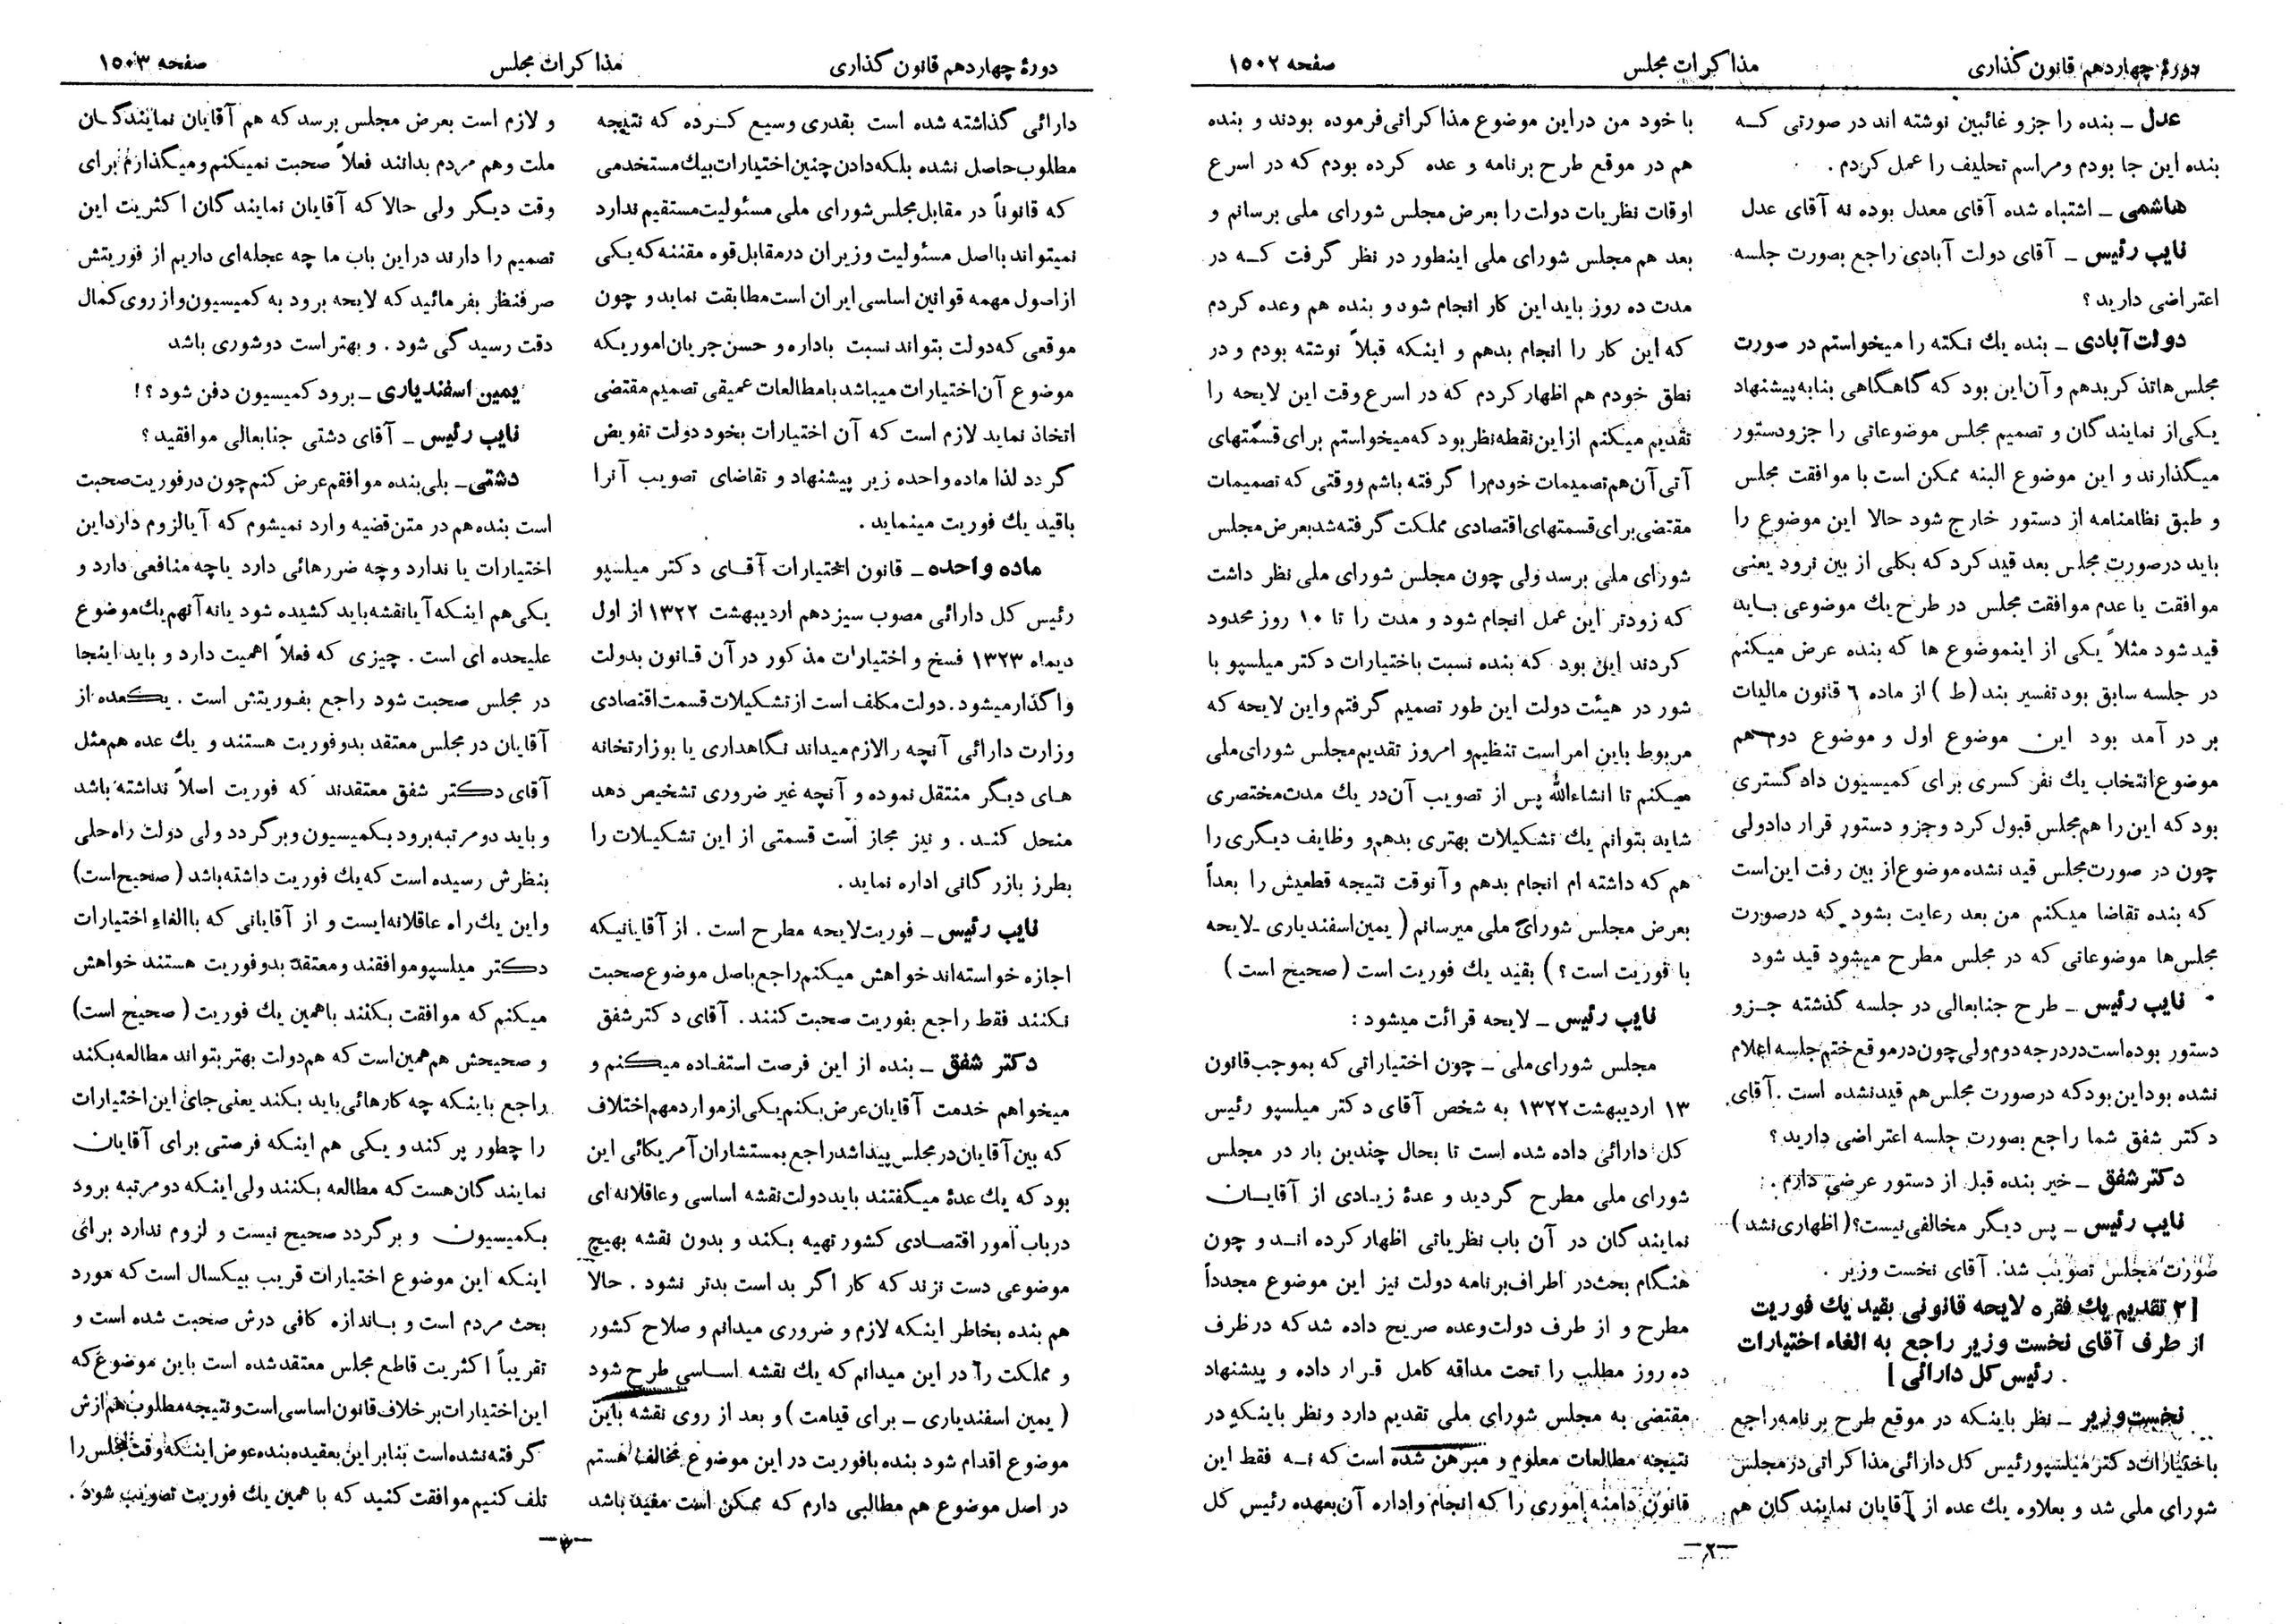 دورهٔ چهاردهم قانون گذاری
مذاکرات مجلس
صفحه ۱۵۰۲
عدل ـ بنده را جزو غائبین نوشته اند در صورتی که
بنده این جا بودم ومراسم تحلیف را عمل کردم .
هاشمی ـ اشتباه شده آقای معدل بوده نه آقای عدل
نایب رئیس ـ آقای دولت آبادی راجع بصورت جلسه
اعتراضی دارید ؟
دولت آبادی ـ بنده یك نکته را میخواستم در صورت
مجلس‌هاتذکر بدهم و آن‌این بود که گاهگاهی بنابه پیشنهاد
یکی‌از نمایندگان و تصمیم مجلس موضوعاتی را جزودستور
میگذارند و این موضوع البته ممکن است با موافقت مجلس
و طبق نظامنامه از دستور خارج شود حالا این موضوع را
باید درصورت مجلس بعد قید کرد که بکلی از بین نرود یعنی
موافقت یا عدم موافقت مجلس در طرح یك موضوعی باید
قید شود مثلاً یکی از اینموضوع ها که بنده عرض میکنم
در جلسه سابق بود تفسیر بند (ط) از ماده ٦ قانون مالیات
بر در آمد بود این موضوع اول و موضوع دوم هم
موضوع انتخاب یك نفر کسری برای کمیسیون دادگستری
بود که این را هم مجلس قبول کرد وجزو دستور قرار دادولی
چون در صورت مجلس قید نشده موضوع از بین رفت این است
که بنده تقاضا میکنم من بعد رعایت بشود که درصورت
مجلس‌ها موضوعاتی که در مجلس مطرح میشود قید شود
نایب رئیس ـ طرح جنابعالی در جلسه گذشته جزو
دستور بوده‌است دردرجه دوم ولی چون درموقع ختم جلسه اعلام
نشده بود این بود که درصورت مجلس هم قید نشده است . آقای
دکتر شفق شما راجع بصورت جلسه اعتراضی دارید ؟
دکتر شفق ـ خیر بنده قبل از دستور عرضی دارم .
نایب رئیس ـ پس دیگر مخالفی نیست؟ (اظهاری نشد)
صورت مجلس تصویب شد. آقای نخست وزیر .
[۲ تقدیم یك فقره لایحه قانونی بقید یك فوریت
از طرف آقای نخست وزیر راجع به الغاء اختیارات
رئیس کل دارائی]
نخست وزیر ـ نظر باینکه در موقع طرح برنامه راجع
باختیارات دکتر میلسپو رئیس کل دارائی مذاکراتی در مجلس
شورای ملی شد و بعلاوه یك عده از آقایان نمایندگان هم
با خود من دراین موضوع مذاکراتی فرموده بودند و بنده
هم در موقع طرح برنامه و عده کرده بودم که در اسرع
اوقات نظریات دولت را بعرض مجلس شورای ملی برسانم و
بعد هم مجلس شورای ملی اینطور در نظر گرفت که در
مدت ده روز باید این کار انجام شود و بنده هم وعده کردم
که این کار را انجام بدهم و اینکه قبلاً نوشته بودم و در
نطق خودم هم اظهار کردم که در اسرع وقت این لایحه را
تقدیم میکنم ازاین نقطه نظر بود که میخواستم برای قسمتهای
آتی آن هم تصمیمات خودم را گرفته باشم ووقتی که تصمیمات
مقتضی برای قسمتهای اقتصادی مملکت گرفته شد بعرض مجلس
شورای ملی برسد ولی چون مجلس شورای ملی نظر داشت
که زودتر این عمل انجام شود و مدت را تا ۱۰ روز محدود
کردند این بود که بنده نسبت باختیارات دکتر میلسپو با
شور در هیئت دولت این طور تصمیم گرفتم واین لایحه که
مربوط باین امر است تنظیم و امروز تقدیم مجلس شورای ملی
میکنم تا انشاءالله پس از تصویب آن در یك مدت مختصری
شاید بتوانم یك تشکیلات بهتری بدهم و وظایف دیگری را
هم که داشته ام انجام بدهم وآنوقت نتیجه قطعیش را بعداً
بعرض مجلس شورای ملی میرسانم (یمین اسفندیاری ـ لایحه
با فوریت است ؟) بقید یك فوریت است (صحیح است)
نایب رئیس ـ لایحه قرائت میشود :
مجلس شورای ملی ـ چون اختیاراتی که بموجب قانون
۱۳ اردیبهشت ۱۳۲۲ به شخص آقای دکتر میلسپو رئیس
کل دارائی داده شده است تا بحال چندین بار در مجلس
شورای ملی مطرح گردید و عدهٔ زیادی از آقایان
نمایندگان در آن باب نظریاتی اظهار کرده اند و چون
هنگام بحث در اطراف برنامه دولت نیز این موضوع مجدداً
مطرح و از طرف دولت وعده صریح داده شد که در ظرف
ده روز مطلب را تحت مداقه کامل قرار داده و پیشنهاد
مقتضی به مجلس شورای ملی تقدیم دارد ونظر باینکه در
نتیجه مطالعات معلوم و مبرهن شده است که نه فقط این
قانون دامنه اموری را که انجام و اداره آن بعهده رئیس کل
دورهٔ چهاردهم قانون گذاری
مذاکرات مجلس
صفحه ۱۵۰۳
دارائی گذاشته شده است بقدری وسیع کرده که نتیجه
مطلوب حاصل نشده بلکه دادن چنین اختیارات بیك مستخدمی
که قانوناً در مقابل مجلس شورای ملی مسئولیت مستقیم ندارد
نمیتواند بااصل مسئولیت وزیران درمقابل قوه مقننه که یکی
از اصول مهمه قوانین اساسی ایران است مطابقت نماید و چون
موقعی که دولت بتواند نسبت باداره و حسن جریان اموریکه
موضوع آن اختیارات میباشد بامطالعات عمیقی تصمیم مقتضی
اتخاذ نماید لازم است که آن اختیارات بخود دولت تفویض
گردد لذا ماده واحده زیر پیشنهاد و تقاضای تصویب آنرا
باقید یك فوریت مینماید .
ماده واحده ـ قانون اختیارات آقای دکتر میلسپو
رئیس کل دارائی مصوب سیزدهم اردیبهشت ۱۳۲۲ از اول
دیماه ۱۳۲۳ فسخ و اختیارات مذکور در آن قانون بدولت
واگذار میشود . دولت مکلف است از تشکیلات قسمت اقتصادی
وزارت دارائی آنچه رالازم میداند نگاهداری یا بوزارتخانه
های دیگر منتقل نموده و آنچه غیر ضروری تشخیص دهد
منحل کند . و نیز مجاز است قسمتی از این تشکیلات را
بطرز بازرگانی اداره نماید .
نایب رئیس ـ فوریت لایحه مطرح است . از آقایانیکه
اجازه خواسته‌اند خواهش میکنم راجع باصل موضوع صحبت
نکنند فقط راجع بفوریت صحبت کنند . آقای دکتر شفق
دکتر شفق ـ بنده از این فرصت استفاده میکنم و
میخواهم خدمت آقایان عرض بکنم یکی از موارد مهم اختلاف
که بین آقایان در مجلس پیدا شد راجع بمستشاران آمریکائی این
بود که یك عدهٔ میگفتند باید دولت نقشه اساسی و عاقلانه‌ای
درباب امور اقتصادی کشور تهیه بکند و بدون نقشه بهیچ
موضوعی دست نزند که کار اگر بد است بدتر نشود . حالا
هم بنده بخاطر اینکه لازم و ضروری میدانم و صلاح کشور
و مملکت را در این میدانم که یك نقشه اساسی طرح شود
(یمین اسفندیاری ـ برای قیامت) و بعد از روی نقشه باین
موضوع اقدام شود بنده بافوریت در این موضوع مخالف هستم
در اصل موضوع هم مطالبی دارم که ممکن است مفید باشد
و لازم است بعرض مجلس برسد که هم آقایان نمایندگان
ملت وهم مردم بدانند فعلاً صحبت نمیکنم ومیگذارم برای
وقت دیگر ولی حالا که آقایان نمایندگان اکثریت این
تصمیم را دارند دراین باب ما چه عجله‌ای داریم از فوریتش
صرفنظر بفرمائید که لایحه برود به کمیسیون واز روی کمال
دقت رسیدگی شود . و بهتر است دوشوری باشد
یمین اسفندیاری ـ برود کمیسیون دفن شود ؟ !
نایب رئیس ـ آقای دشتی جنابعالی موافقید ؟
دشتی ـ بلی بنده موافقم عرض کنم چون در فوریت صحبت
است بنده هم در متن قضیه وارد نمیشوم که آیا لزوم دارد این
اختیارات یا ندارد وچه ضررهائی دارد یاچه منافعی دارد و
یکی هم اینکه آیا نقشه باید کشیده شود یانه آنهم یك موضوع
علیحده ای است . چیزی که فعلاً اهمیت دارد و باید اینجا
در مجلس صحبت شود راجع بفوریتش است . یکعده از
آقایان در مجلس معتقد بدو فوریت هستند و یك عده هم مثل
آقای دکتر شفق معتقدند که فوریت اصلاً نداشته باشد
و باید دو مرتبه برود بکمیسیون و برگردد ولی دولت راه حلی
بنظرش رسیده است که یك فوریت داشته باشد (صحیح است)
واین یك راه عاقلانه‌ایست و از آقایانی که باالغاء اختیارات
دکتر میلسپو موافقند ومعتقد بدو فوریت هستند خواهش
میکنم که موافقت بکنند باهمین یك فوریت (صحیح است)
و صحیحش هم همین است که هم دولت بهتر بتواند مطالعه بکند
راجع باینکه چه کارهائی باید بکند یعنی جای این اختیارات
را چطور پر کند و یکی هم اینکه فرصتی برای آقایان
نمایندگان هست که مطالعه بکنند ولی اینکه دو مرتبه برود
بکمیسیون و برگردد صحیح نیست و لزوم ندارد برای
اینکه این موضوع اختیارات قریب بیکسال است که مورد
بحث مردم است و باندازه کافی درش صحبت شده است و
تقریباً اکثریت قاطع مجلس معتقد شده است باین موضوع که
این اختیارات بر خلاف قانون اساسی است و نتیجه مطلوب هم ازش
گرفته نشده است بنابر این بعقیده بنده عوض اینکه وقت مجلس را
تلف کنیم موافقت کنید که با همین یك فوریت تصویب شود .
ـ۲ـ
ـ۳ـ